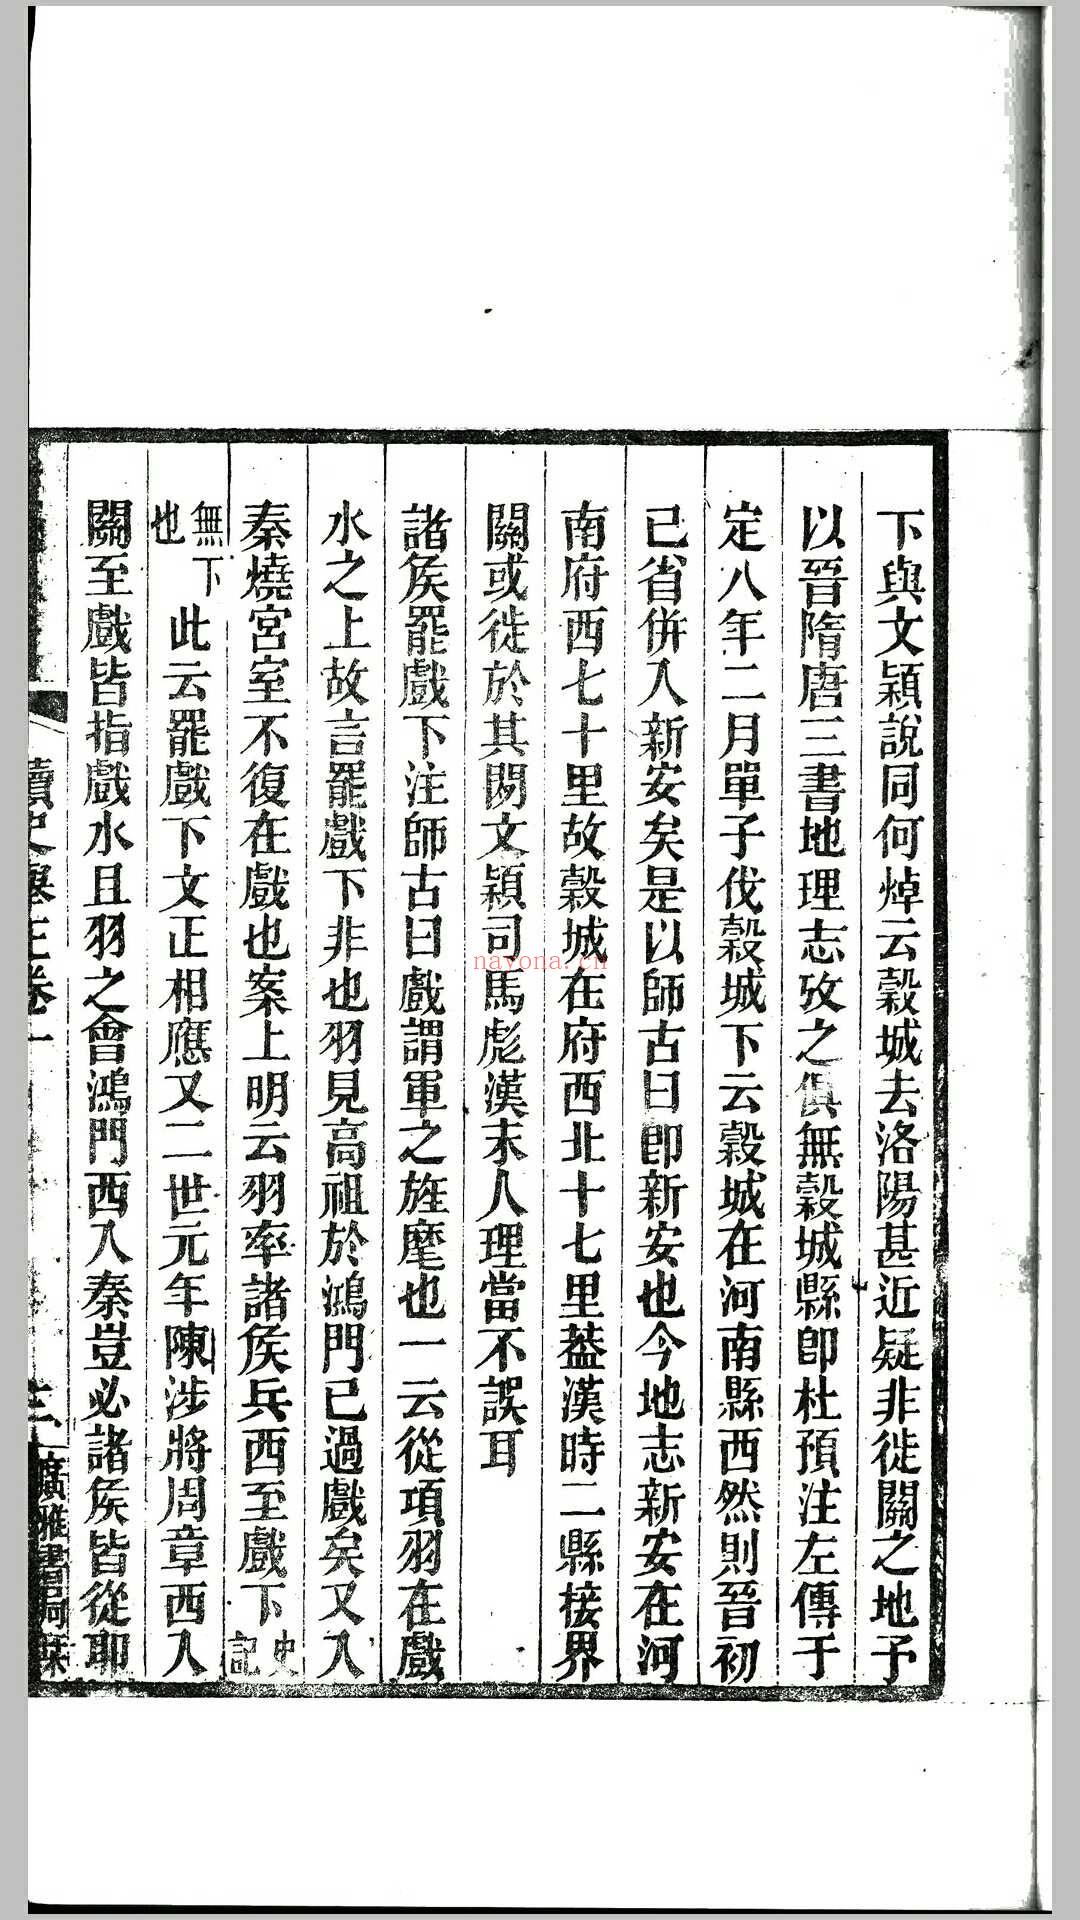 下與文穎說同何焯云穀城去洛陽甚近疑非徙關之地予
以晉隋唐三書地理志攷之俱無穀城縣卽杜預注左傳于
定八年二月單子伐穀城下云穀城在河南縣西然則晉初
已省併入新安矣是以師古曰卽新安也今地志新安在河
南府西七十里故穀城在府西北十七里葢漢時二縣接界
關或徙於其閒文穎司馬彪漢末人理當不誤耳
諸矦罷戲下注師古曰戲謂軍之旌麾也一云從項羽在戲
水之上故言罷戲下非也羽見高祖於鴻門已過戲矣又入
秦燒宮室不復在戲也案上明云羽率諸矦兵西至戲下史記
無下也此云罷戲下文正相應又二世元年陳涉將周章西入
關至戲皆指戲水且羽之會鴻門西入秦豈必諸矦皆從耶
讀史舉正卷一
三
廣雅書局栞
nayona.cn